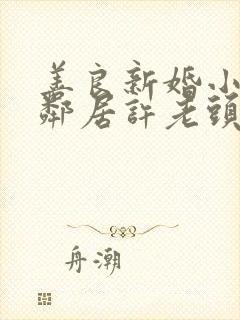 善良新婚小
鄰居許老頭
舟潮